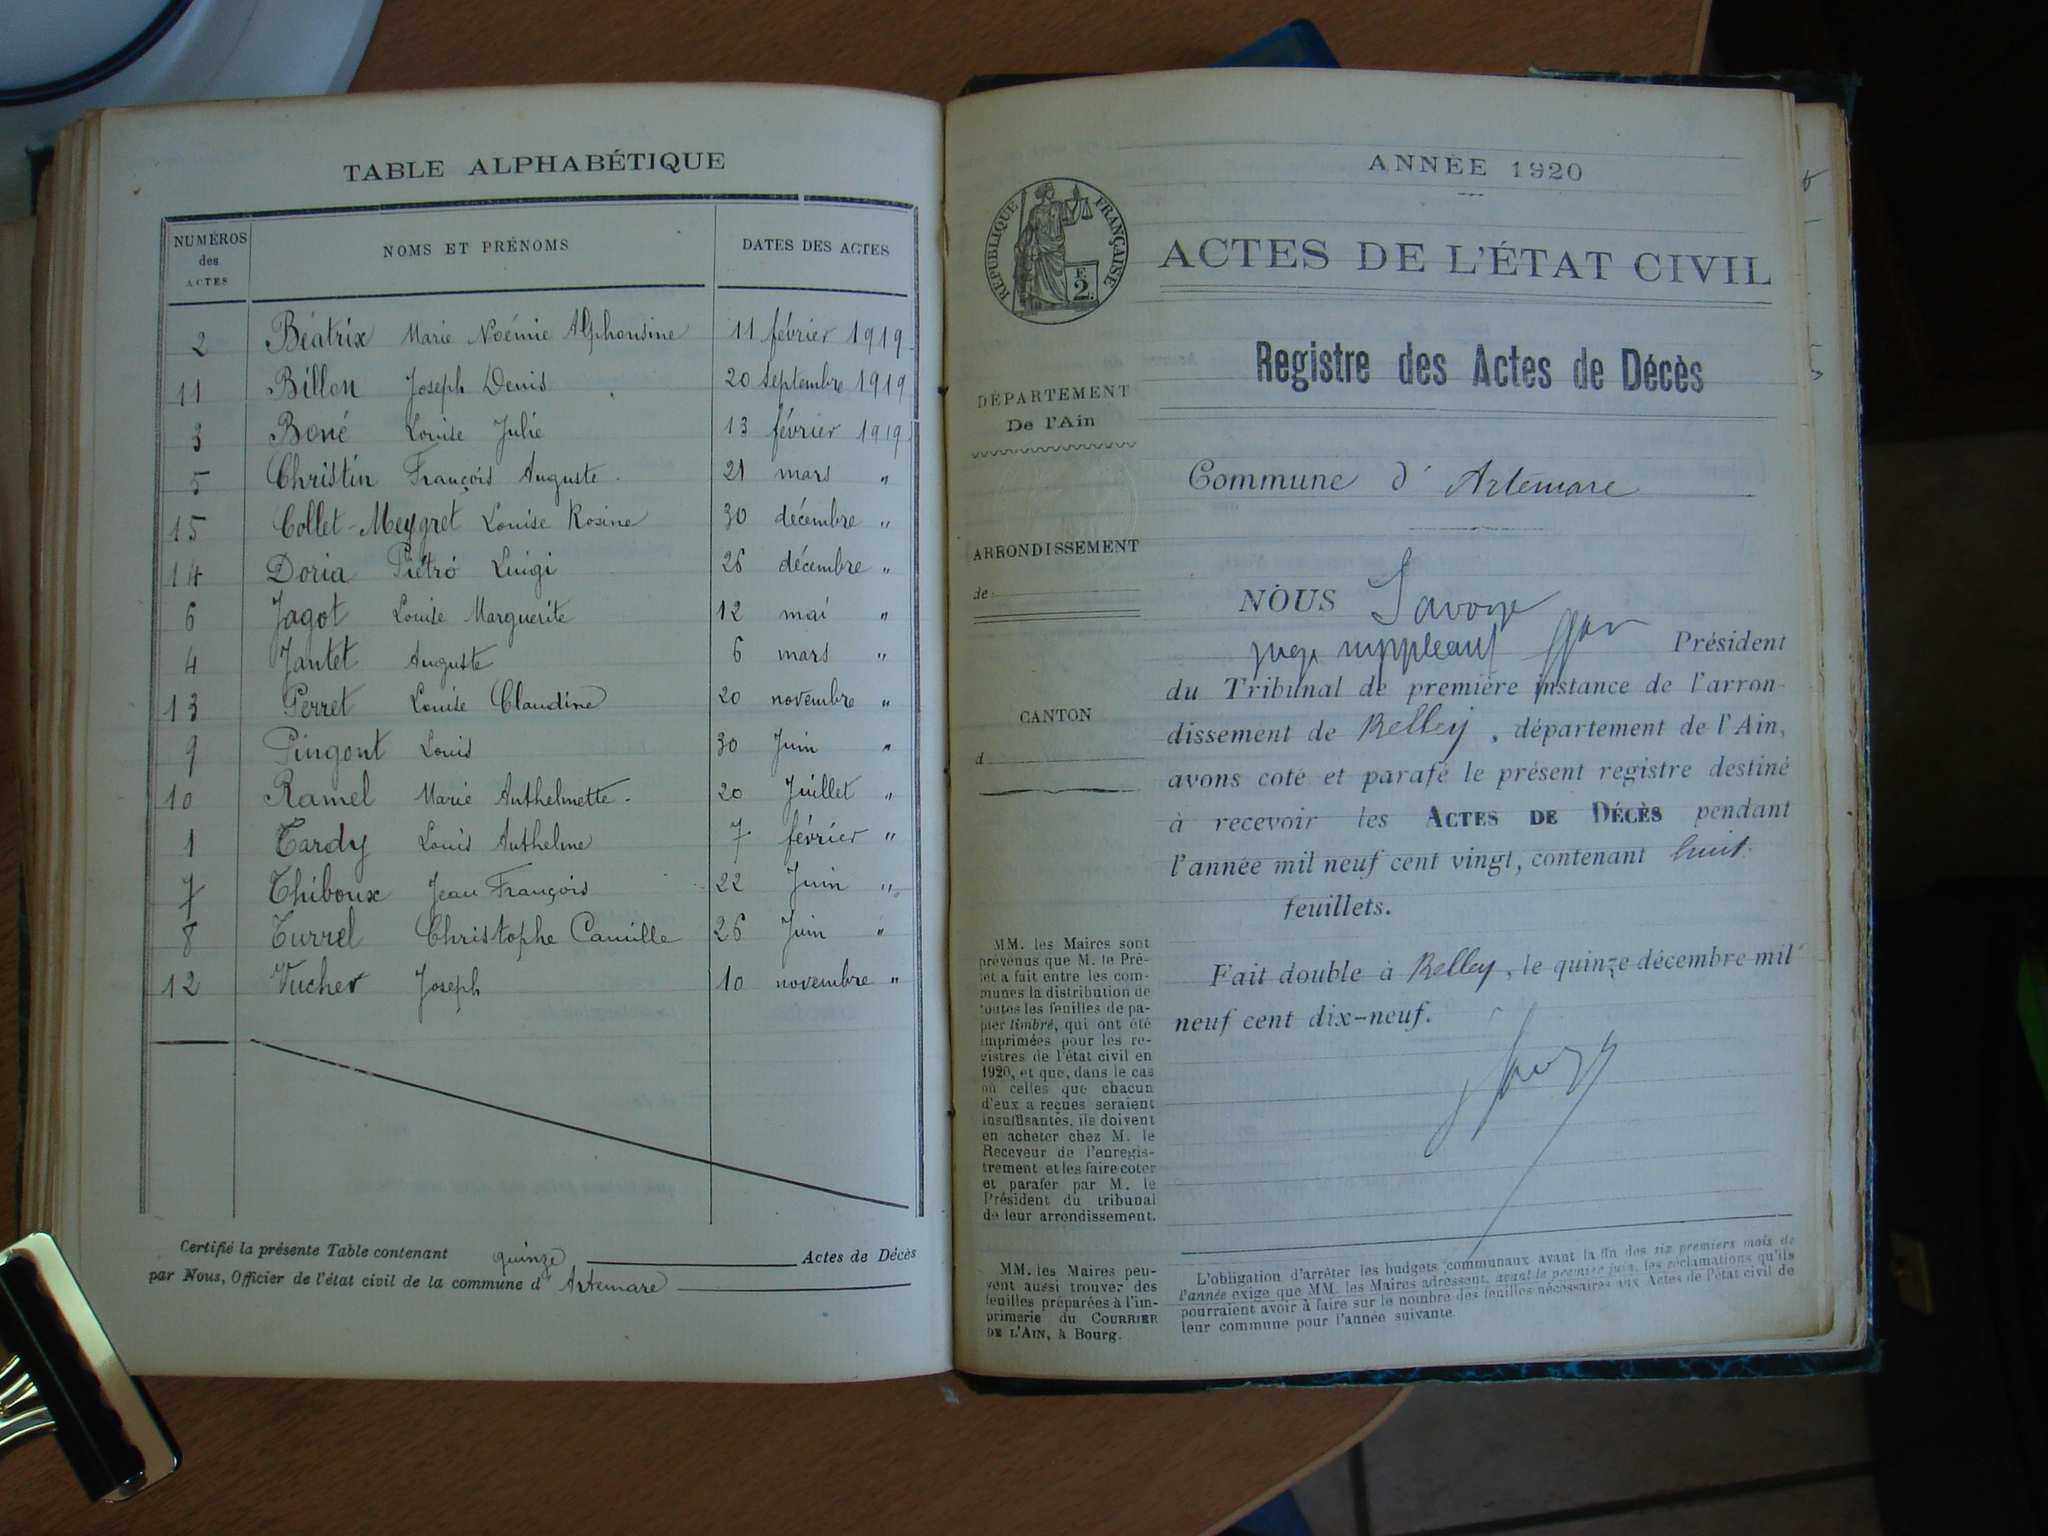 TABLE ALPHABÉTIQUE
NUMÉROS des ACTES NOMS ET PRÉNOMS DATES DES ACTES
2 Béatrix Marie Noémie Alphonsine 11 février 1919
11 Billon Joseph Denis 20 septembre 1919
3 Boné Louise Julie 13 février 1919
5 Christin François Auguste 21 mars "
15 Collet-Meygret Louise Rosine 30 décembre "
14 Doria Piétro Luigi 26 décembre "
6 Jagot Louise Marguerite 12 mai "
4 Jantet Auguste 6 mars "
13 Perret Louise Claudine 20 novembre "
9 Pingont Louis 30 Juin "
10 Ramel Marie Anthelmette 20 Juillet "
1 Tardy Louis Anthelme 7 février "
7 Thiboux Jean François 22 Juin "
8 Turrel Christophe Camille 26 Juin "
12 Vucher Joseph 10 novembre "
Certifié la présente Table contenant quinze Actes de Décès
par Nous, Officier de l'état civil de la commune d' Artemare
ANNÉE 1920
RÉPUBLIQUE FRANÇAISE
F. 2.
ACTES DE L'ÉTAT CIVIL
Registre des Actes de Décès
DÉPARTEMENT
De l'Ain
Commune d' Artemare
ARRONDISSEMENT
de
CANTON
d
NOUS Savoye
juge suppléant Président
du Tribunal de première instance de l'arron-
dissement de Belley, département de l'Ain,
avons coté et parafé le présent registre destiné
à recevoir les ACTES DE DÉCÈS pendant
l'année mil neuf cent vingt, contenant huit
feuillets.
Fait double à Belley, le quinze décembre mil
neuf cent dix-neuf.
MM. les Maires sont
prévenus que M. le Pré-
fet a fait entre les com-
munes la distribution de
toutes les feuilles de pa-
pier timbré, qui ont été
imprimées pour les re-
gistres de l'état civil en
1920, et que, dans le cas
où celles que chacun
d'eux a reçues seraient
insuffisantes, ils doivent
en acheter chez M. le
Receveur de l'enregis-
trement et les faire coter
et parafer par M. le
Président du tribunal
de leur arrondissement.
MM. les Maires peu-
vent aussi trouver des
feuilles préparées à l'im-
primerie du COURRIER
DE L'AIN, à Bourg.
L'obligation d'arrêter les budgets communaux avant la fin des six premiers mois de
l'année exige que MM. les Maires adressent, avant le premier juin, les réclamations qu'ils
pourraient avoir à faire sur le nombre des feuilles nécessaires aux Actes de l'état civil de
leur commune pour l'année suivante.